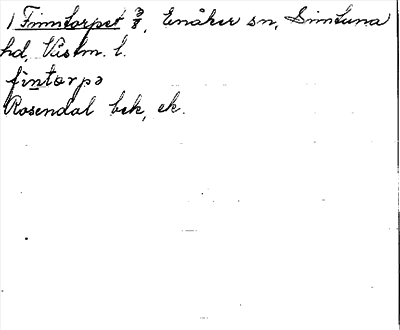 1 Finntorpet 3/8, Enåker sn, Simtuna
hd, Västm. l.
fìntǫrpə
Rosendal bek, ek.